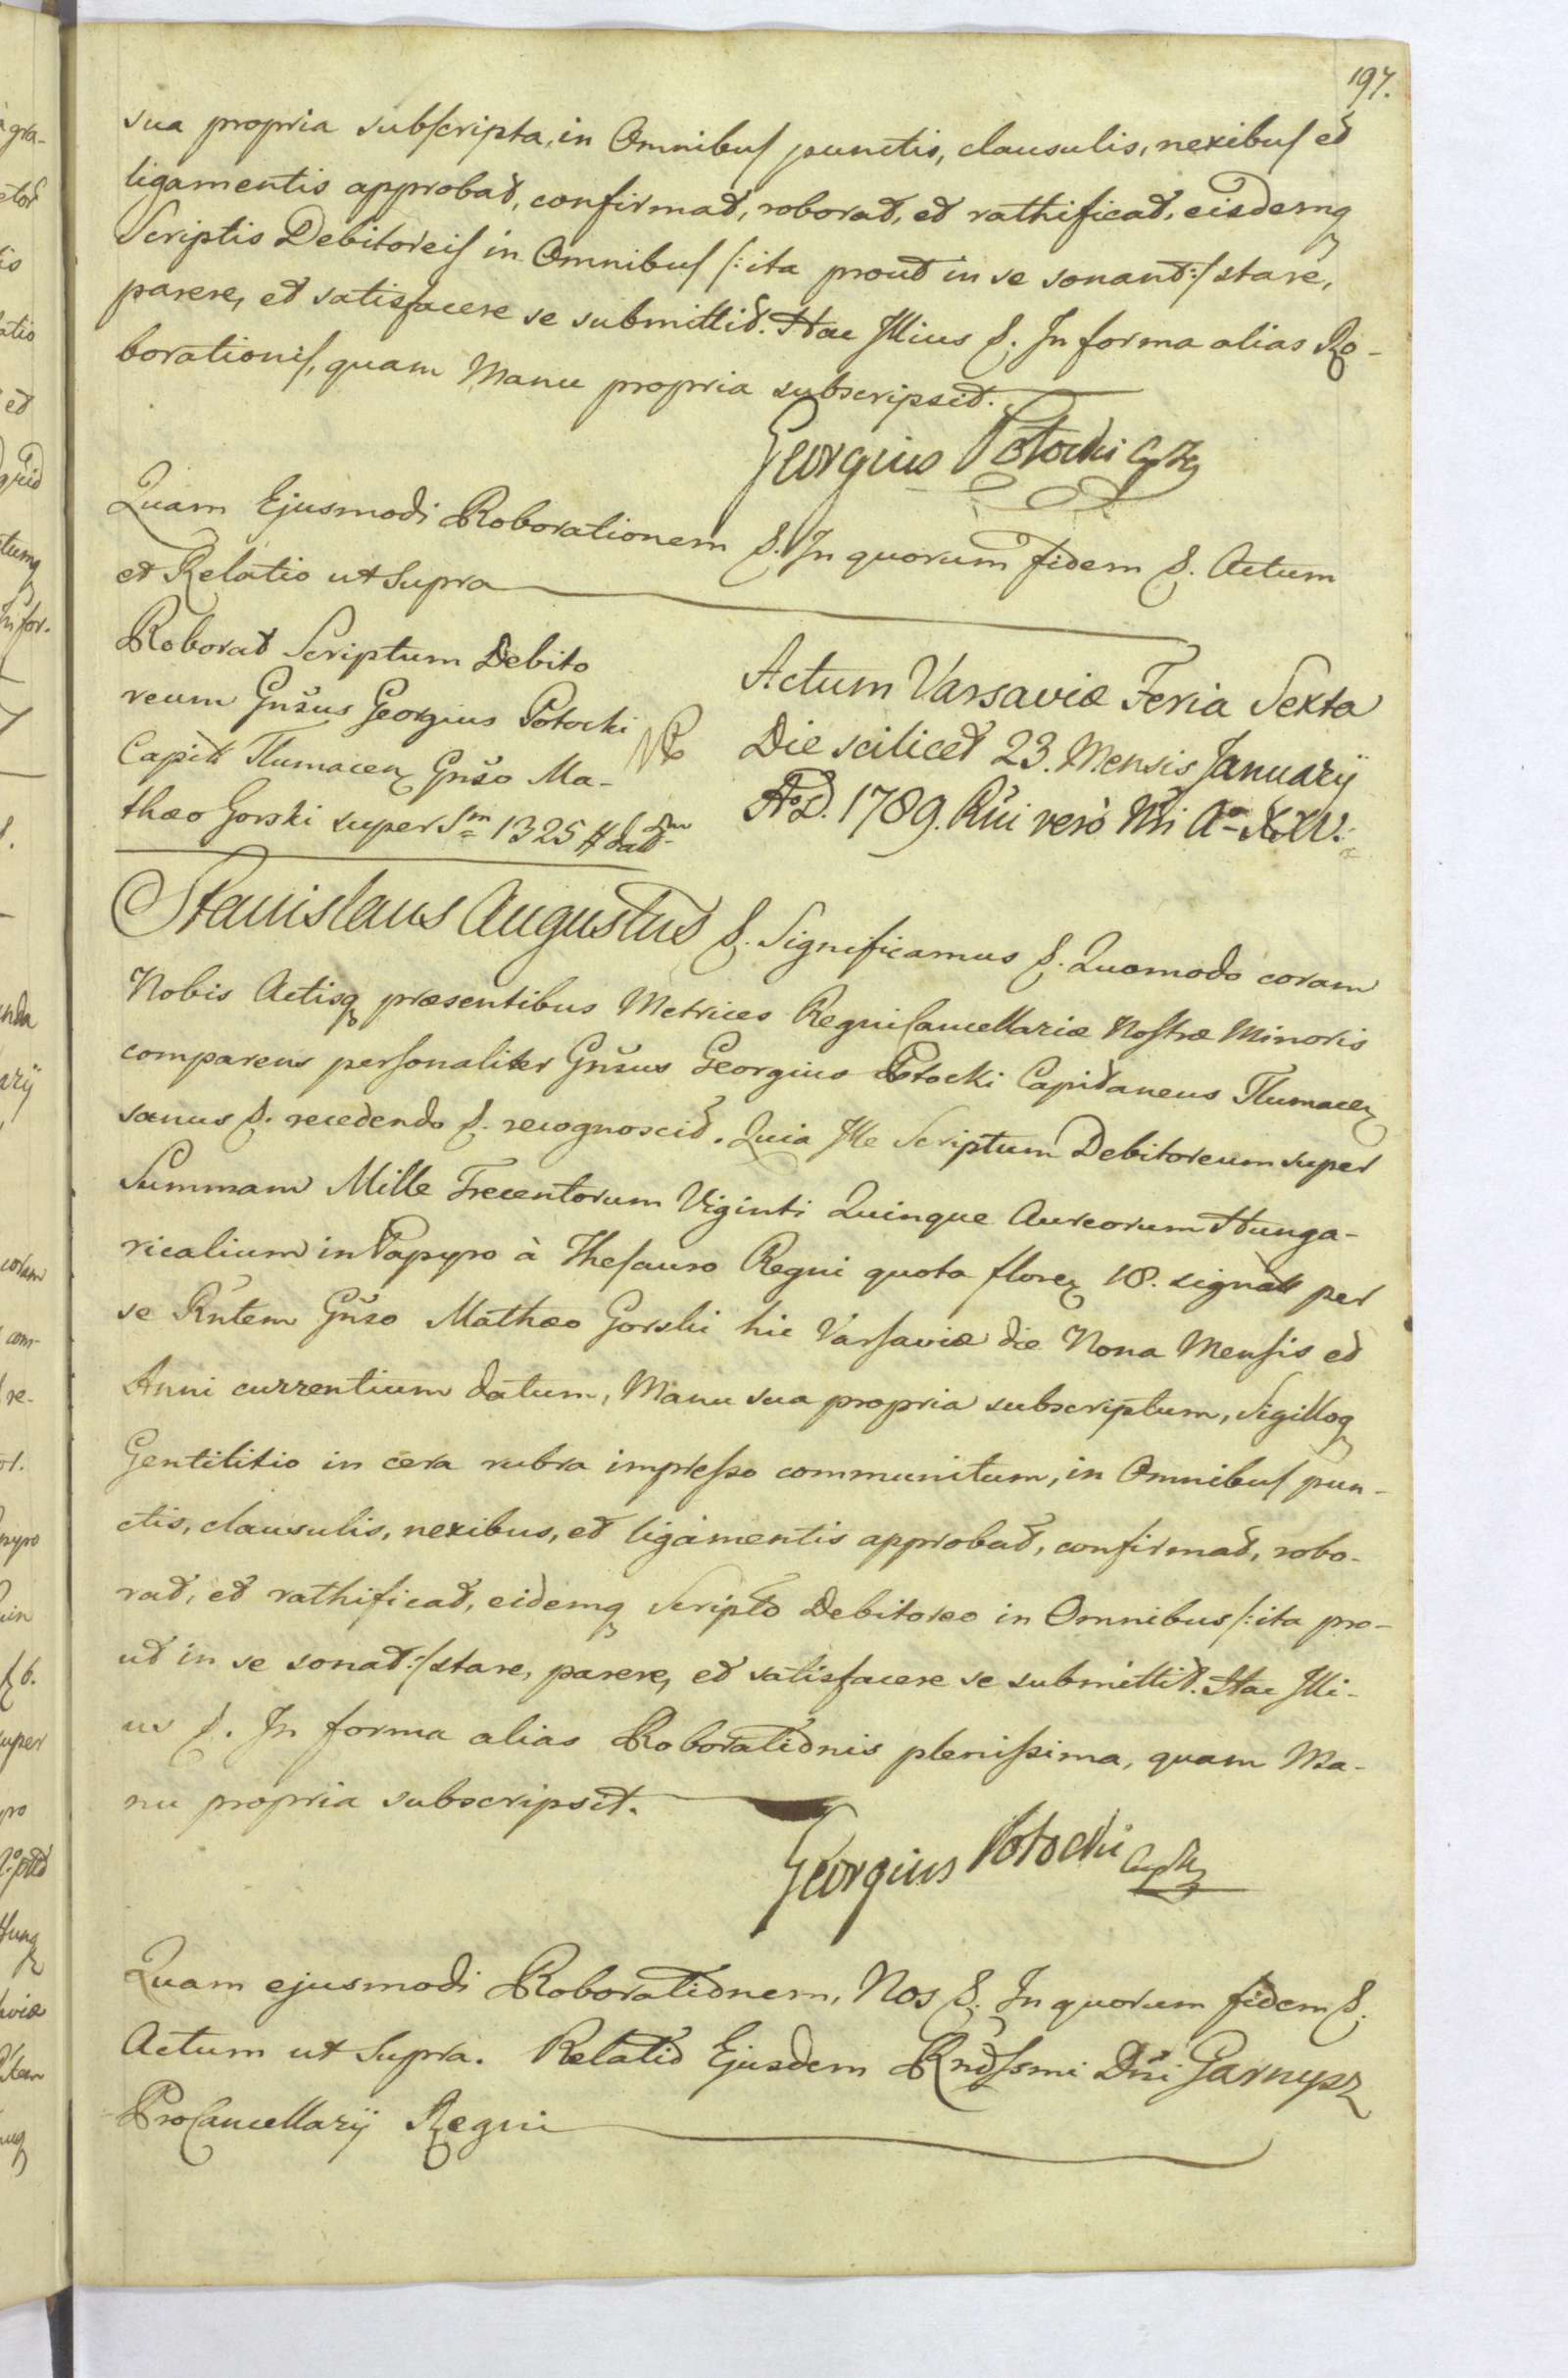 197.
sua propria subscripta, in Omnibus punctis, clausulis, nexibus et
ligamentis approbat, confirmat, roborat, et rathificat, eisdemq
Scriptis Debitoreis in Omnibus /: ita prout in se sonant :/ stare,
parere, et satisfacere se submittit. Hac Illius &. In forma alias Ro-
borationis, quam Manu propria subscripsit.
Georgius Potocki
Quam Ejusmodi Roborationem &. In quorum fidem &. Actum
et Relatio ut Supra
Roborat Scriptum Debito
reum Gnsus Georgius Potocki
Capitt Tlumacen Gnso Ma-
thæo Gorski super Sm 1325 # datm
Actum Varsaviæ Feria Sexta
Die scilicet 23. Mensis January
A.D. 1789. Rni vero Nri Ao XXV.
Stanislaus Augustus &. Significamus &. Quomodo coram
Nobis Actisq præsentibus Metrices Regni Cancellariæ Nostræ Minoris
comparens personaliter Gnsus Georgius Potocki Capitaneus Tlumacen
sanus &. recedendo &. recognoscit. Quia Ille Scriptum Debitoreum super
Summam Mille Trecentorum Viginti Quinque Aureorum Hunga-
ricalium in Papyro à Thesauro Regni quota floren 18. signatt per
se Rntem Gnso Mathæo Gorski hic Varsaviæ die Nona Mensis et
Anni currentium datum, Manu sua propria subscriptum, Sigilloq
Gentilitio in cera rubra impresso communitum, in Omnibus pun-
ctis, clausulis, nexibus, et ligamentis approbat, confirmat, robo-
rat, et rathificat, eidemq Scripto Debitoreo in Omnibus /: ita pro-
ut in se sonat :/ stare, parere, et satisfacere se submittit. Hac Illi-
us &. In forma alias Roborationis plenissima, quam Ma-
nu propria subscripsit.
Georgius Potocki
Quam ejusmodi Roborationem, Nos &. In quorum fidem &.
Actum ut Supra. Relatio Ejusdem Rndssmi Dni Garnysz
ProCancellarij Regni